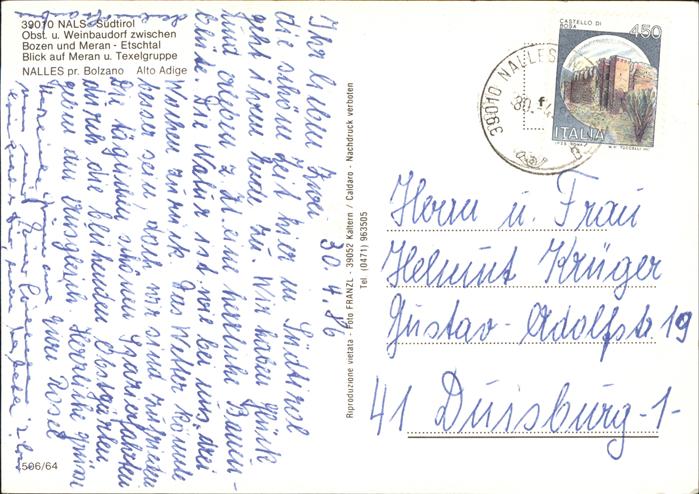 39010 NALS - Südtirol
Obst. u. Weinbaudorf zwischen
Bozen und Meran - Etschtal
Blick auf Meran u. Texelgruppe
NALLES pr. Bolzano Alto Adige
30.4.86
Ihr lieben Zwei
die schöne Zeit hier in Südtirol
geht schon Ende zu. Wir haben Glück
und erleben z. Zt. eine herrliche Baum-
blüte. Die Natur ist wie bei uns, drei
Wochen zurück. Das Wetter könnte
besser sein, doch wir sind zufrieden
Die täglichen schönen Spazierfahrten
durch die blühenden Obstgärten
geben den Ausgleich. Herzliche Grüße
Eure Rosel
506/64
Riproduzione vietata - Foto FRANZL - 39052 Kaltern / Caldaro - Nachdruck verboten
Tel. (0471) 963505
CASTELLO DI
BOSA
450
ITALIA
39010 NALLES
Herrn u. Frau
Helmut Krüger
Gustav-Adolfstr 19
41 Duisburg -1-